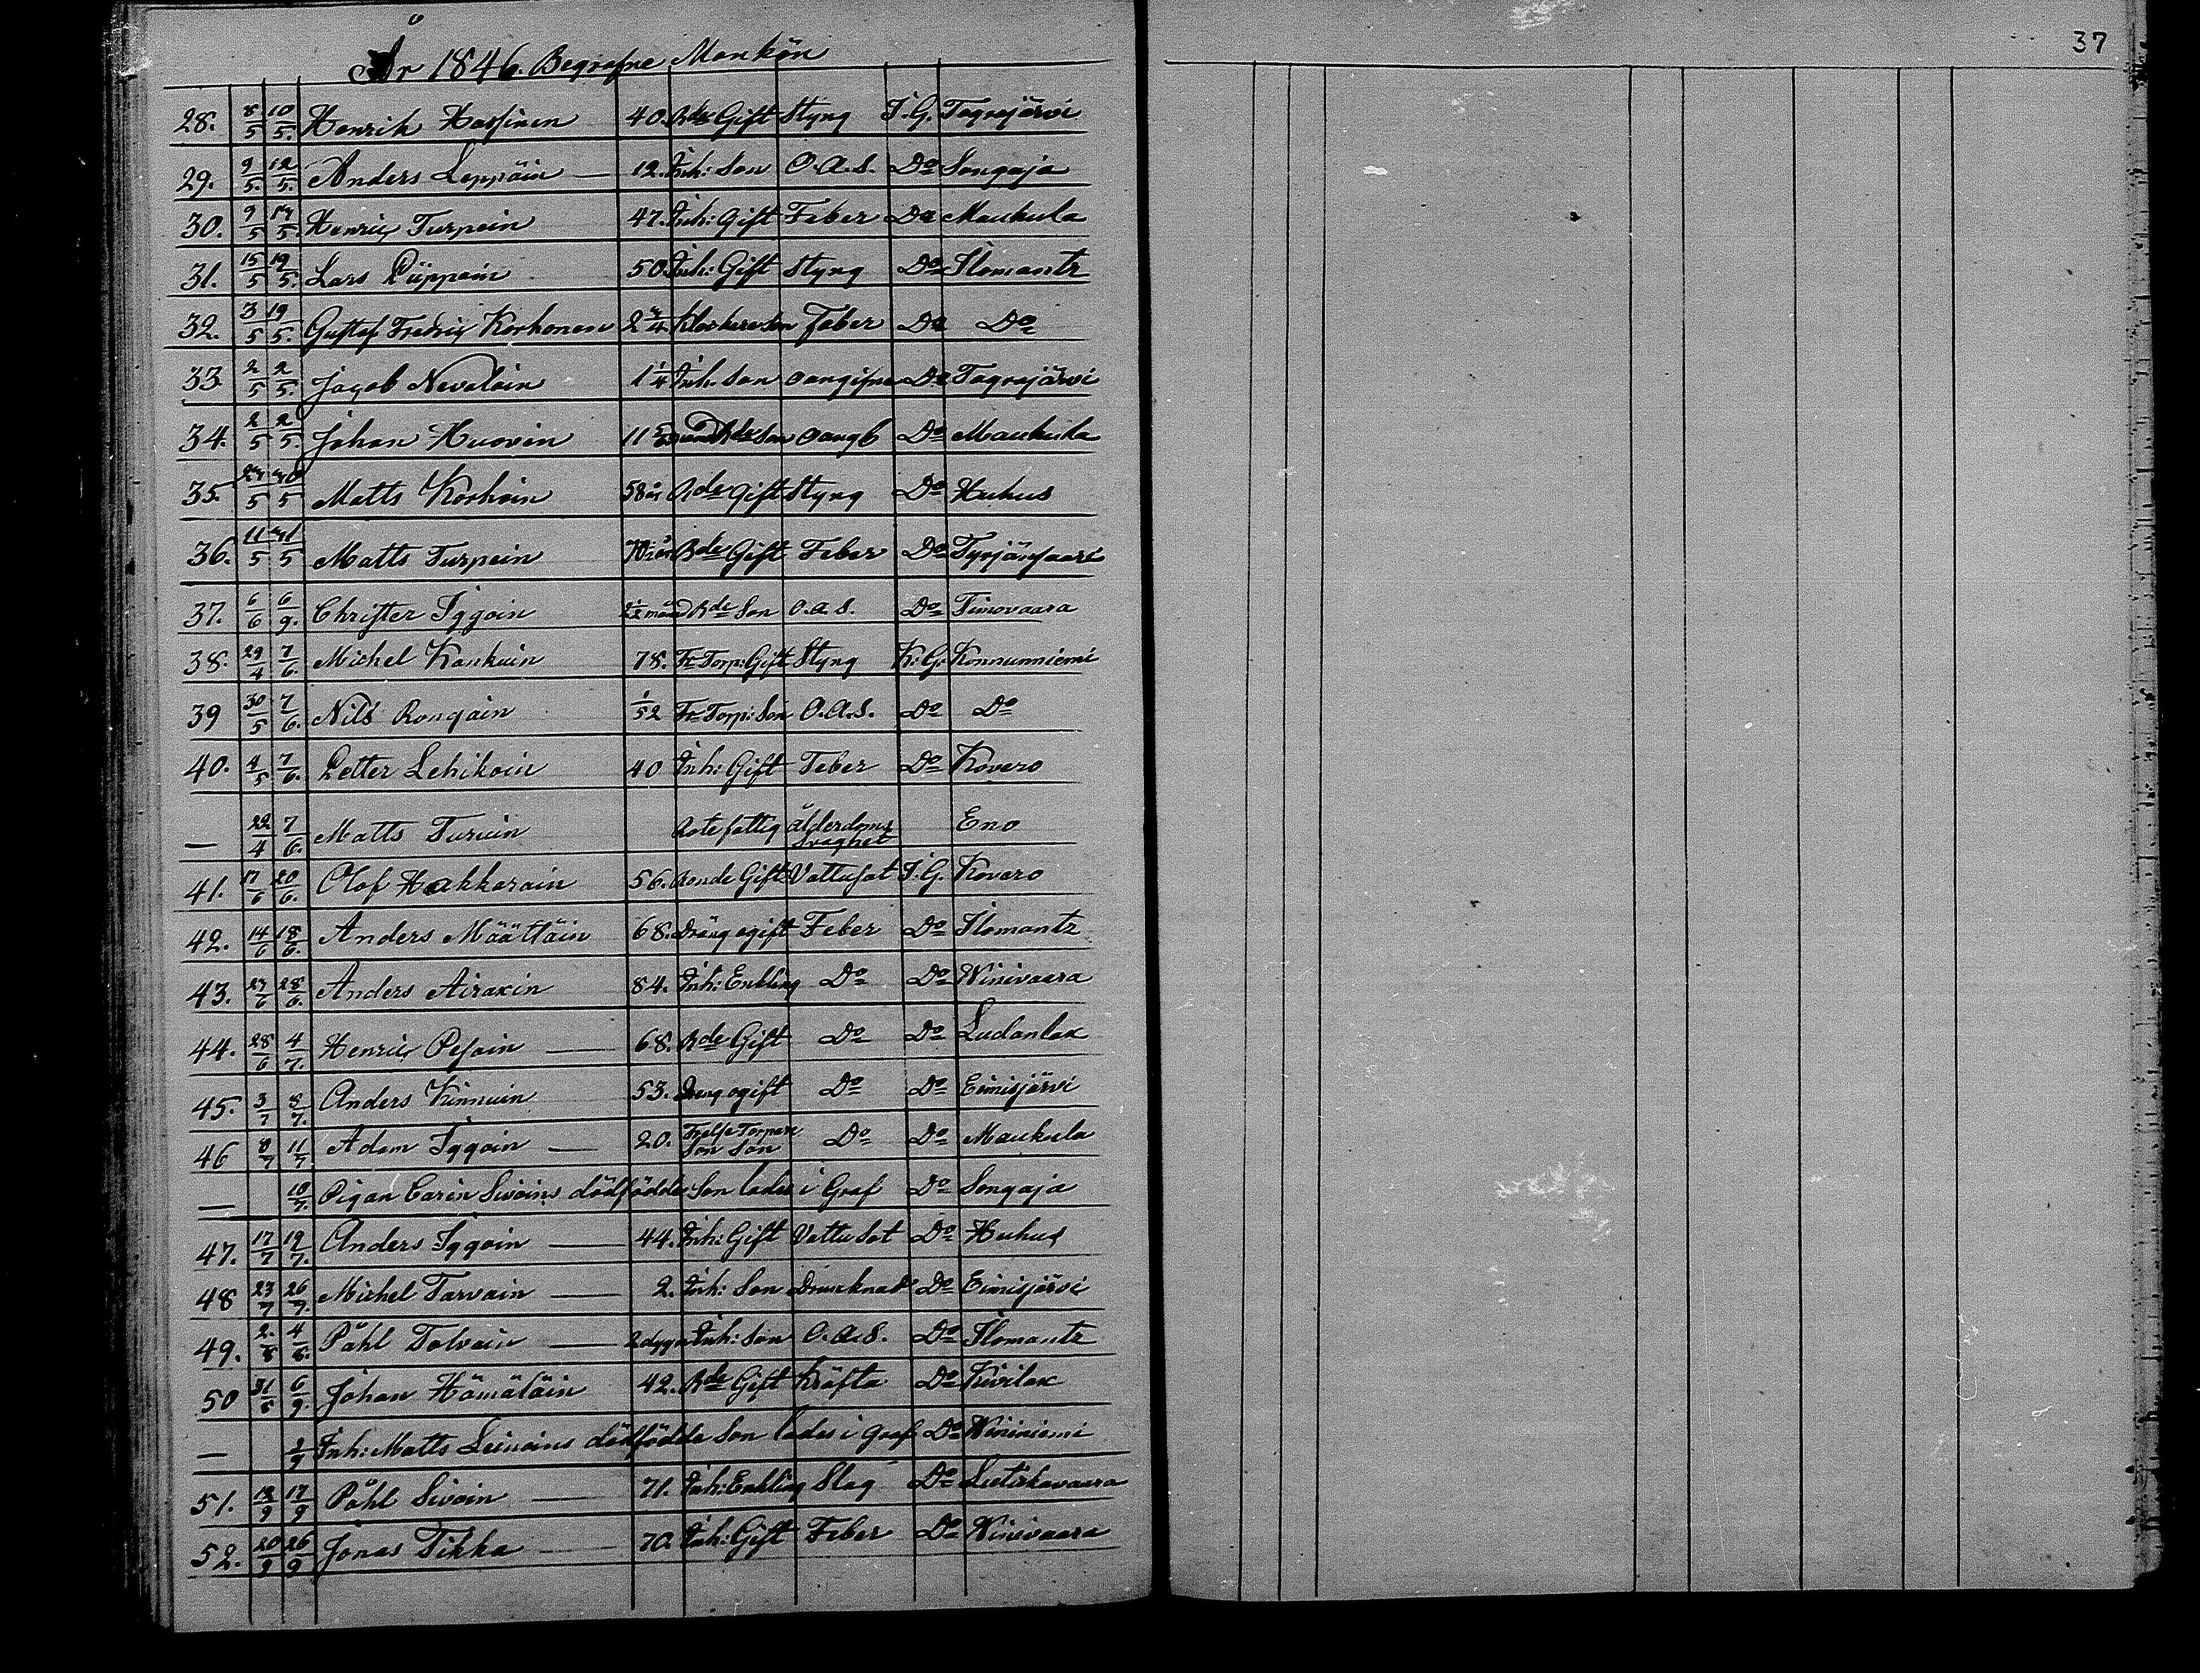 37
År 1846. Begrafne Mankön
28. 8/5 10/5. Henrik Hassinen 40. Rde Gift Styng I. G. Togrojärvi
29. 9/5. 12/5. Anders Leppäin — 12. Inh: Son O. A. S. Do Songaja
30. 9/5 17/5. Henric Turpein 47. Inh: Gift Feber Do Maukula
31. 15/5 19/5. Lars Püppoin 50. Inh: Gift Styng Do Ilomantz
32. 3/5 19/5. Gustaf Fredric Korhonen 2 3/4 Klockare Son Feber Do Do
33 2/5 2/5. Jacob Nevaloin 1 1/4 Inh. Son oangifne Do Togrojärvi
34. 2/5 2/5 Johan Huovin 11 Rde Son oangb Do Maukula
35. 5 5 Matts Korhoin 58 år Rde Gift Styng Do Huhus
36. 11/5 31/5 Matts Turpein Rde Gift Feber Do Tyrjänsaari
37. 6/6 6/9. Christer Iggoin 2 1/2 månad Rde Son O. a. S. Do Timovaara
38. 29/4 7/6. Michel Kankuin 78. Fr Torp: Gift Styng K: G: Konnunniemi
39 30/5 7/6. Nils Rongain 1/52 Fr Torp: Son O. A. S. Do Do
40. 4/5 7/6. Petter Lehikoin 40 Inh: Gift Feber Do Kovero
— 22/4 7/6. Matts Turuin Rotefattig ålderdoms Eno
Svaghet
41. 17/6 20/6. Olof Hakkarain 56. Bonde Gift Vattusot I. G. Kovero
42. 14/6 18/6. Anders Määttäin 68. Dräng ogift Feber Do Ilomantz
43. 27/6 28/6. Anders Airaxin 84. Inh: Enkling Do Do Winivaara
44. 28/6 4/7. Henric Pesoin — 68. Rde Gift Do Do Ludanlax
45. 3/7 8/7. Anders Kinnuin 53. Dräng ogift Do Do Eimisjärvi
46 8/7 11/7 Adam Iggoin — 20. Frälse Torpare Do Do Maukula
Son Son
— 10/7. Pigan Carin Sivoins dödfödde Son lades i Graf Do Songaja
47. 17/7 19/7. Anders Iggoin — 44. Inh: Gift Vattusot Do Huhus
48 23/7 26/7. Michel Tarvain — 2. Inh: Son Drunknade Do Eimisjärvi
49. 2./8 4/8. Påhl Tolvain — 2 dygn Inh: Son O. A. S. Do Ilomantz
50 31/8 6/9. Johan Hämäläin 42. Rde Gift Kräfta Do Kivilax
— 9 Inh: Matts Leinoins dödfödde Son lades i Graf Do Wininiemi
51. 12/9 17/9 Påhl Sivoin — 71. Inh: Enkling Slag Do Lietiskavaara
52. 20/9 26/9 Jonas Tikka — 70. Inh: Gift Feber Do Winivaara